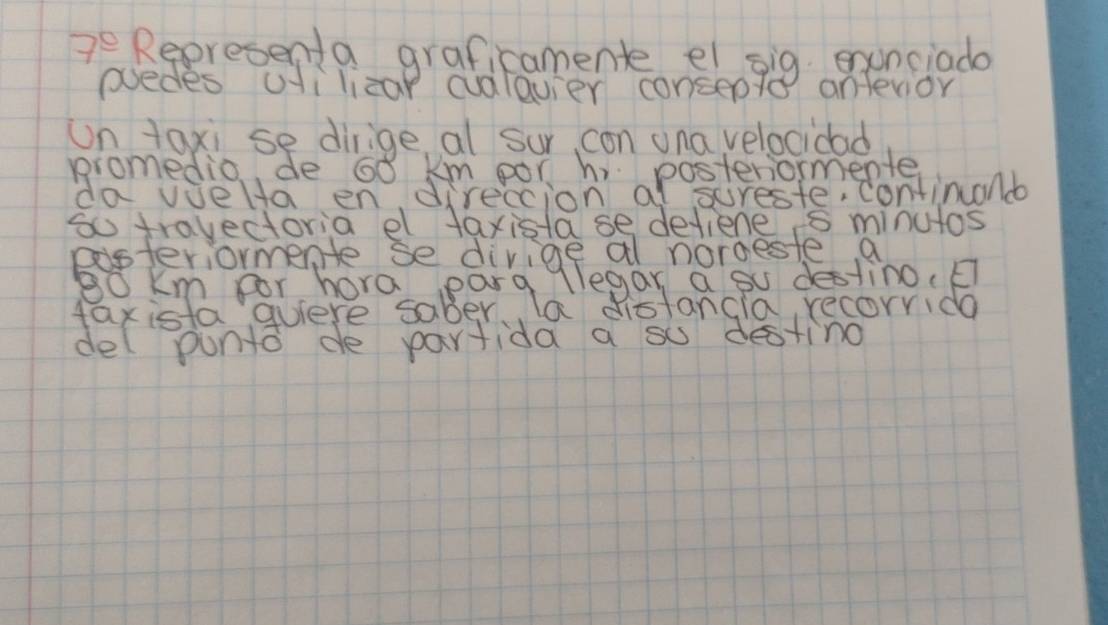 7º Representa graficamente el sig. enunciado
puedes utilizar cualquier consepto anterior
Un taxi se dirige al sur con una velocidad
promedio de 60 km por hr. posteriormente
da vuelta en direccion al sureste. continuando
su trayectoria el taxista se detiene 5 minutos
posteriormente se dirige al noroeste a
80 km por hora para llegar a su destino. El
taxista quiere saber la distancia recorrida
del punto de partida a su destino